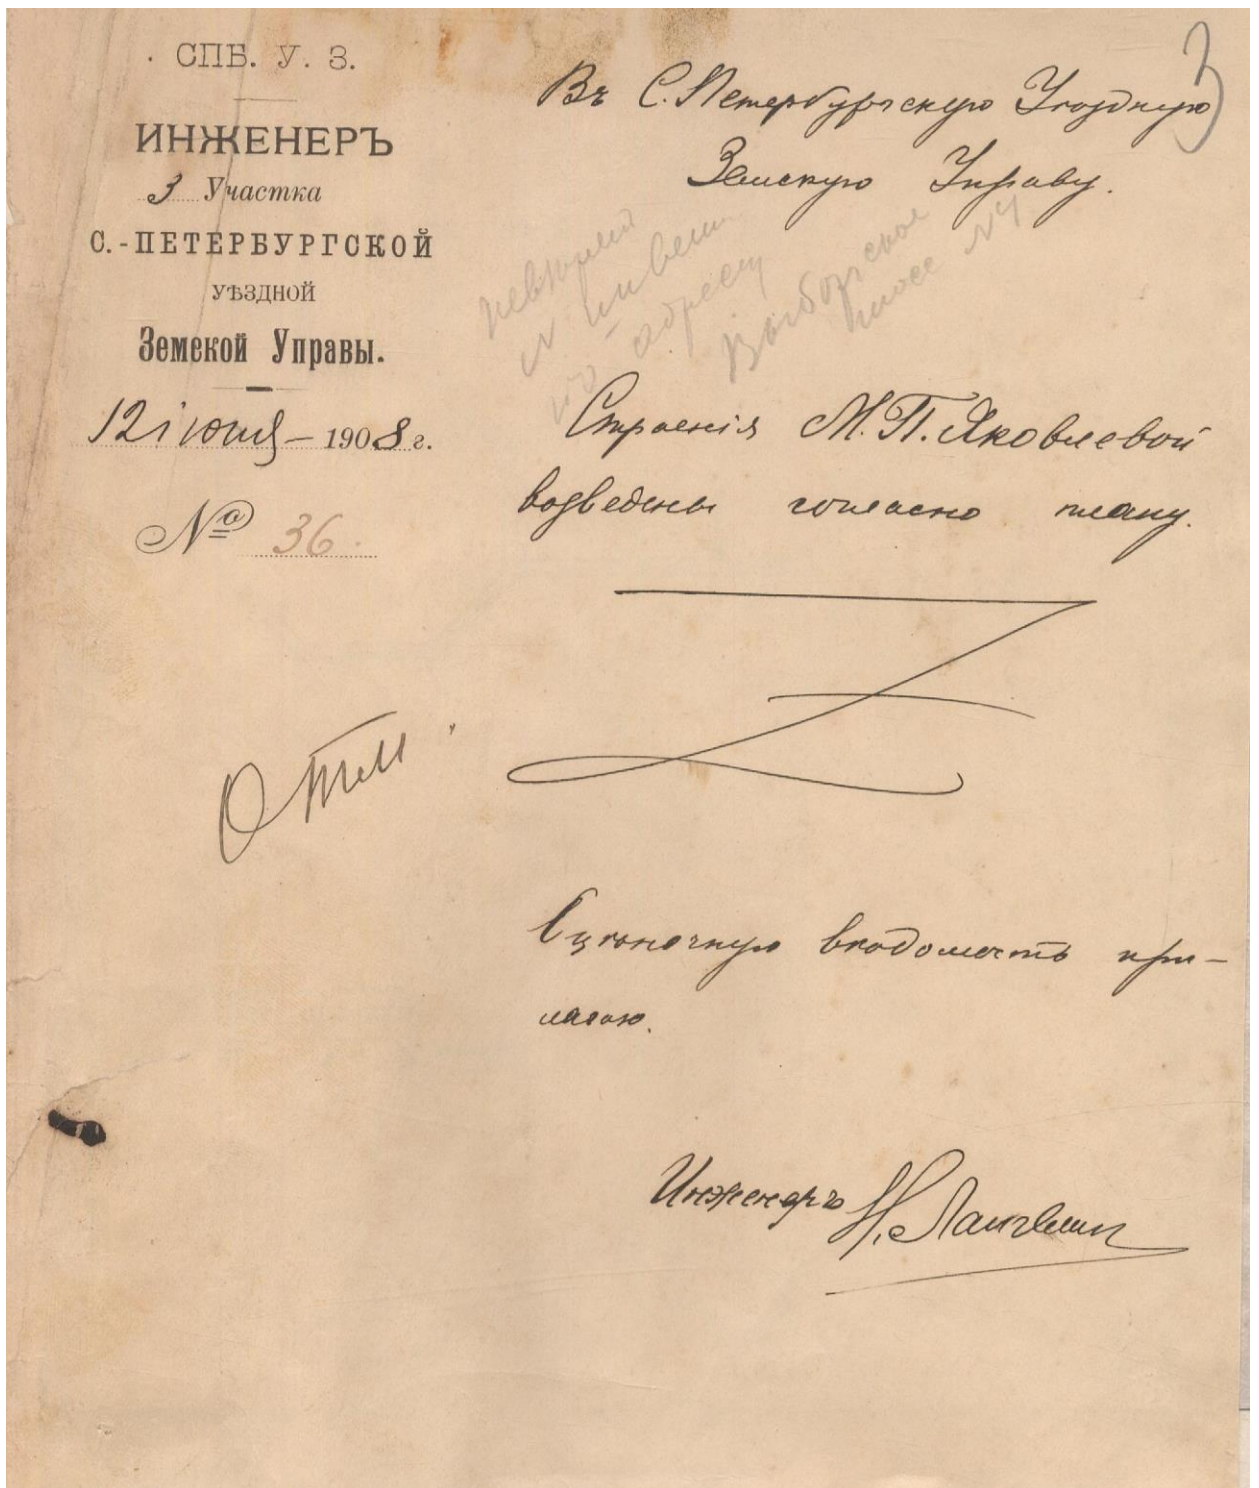 СПБ. У. З.
ИНЖЕНЕРЪ
3 Участка
С.-ПЕТЕРБУРГСКОЙ
УѢЗДНОЙ
Земской Управы.
12 іюня – 1908 г.
№ 36
3
Въ С.Петербургскую Уѣздную
Земскую Управу.
адресу
Выборгское
шоссе №4
Строенія М.П.Яковлевой
возведены согласно плану.
Отм.
Оцѣночную вѣдомость при-
лагаю.
Инженеръ Н.